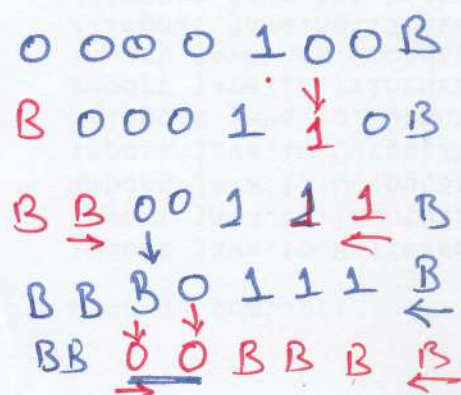 0 0 0 0 1 0 0 B
B 0 0 0 1 1 0 B
B B 0 0 1 1 1 B
B B B 0 1 1 1 B
B B 0 0 B B B B